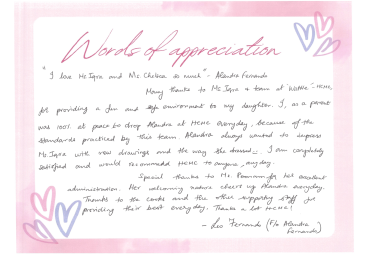 Words of appreciation
"I love Ms. Iqra and Ms. Chelsea so much" - Alandra Fernando
Many thanks to Ms. Iqra & team at Wattle - HCHC
for providing a fun and safe environment to my daughter. I, as a parent
was 100% at peace to drop Alandra at HCHC everyday, because of the
standards practiced by this team. Alandra always wanted to impress
Ms. Iqra with new drawings and the way she dressed. I am completely
satisfied and would recommend HCHC to anyone, anyday.
Special thanks to Ms. for her excellent
administration. Her welcoming nature cheers up Alandra everyday.
Thanks to the cooks and the other supporting staff for
providing their best everyday. Thanks a lot HCHC!
- Leo Fernando (F/o Alandra
Fernando)